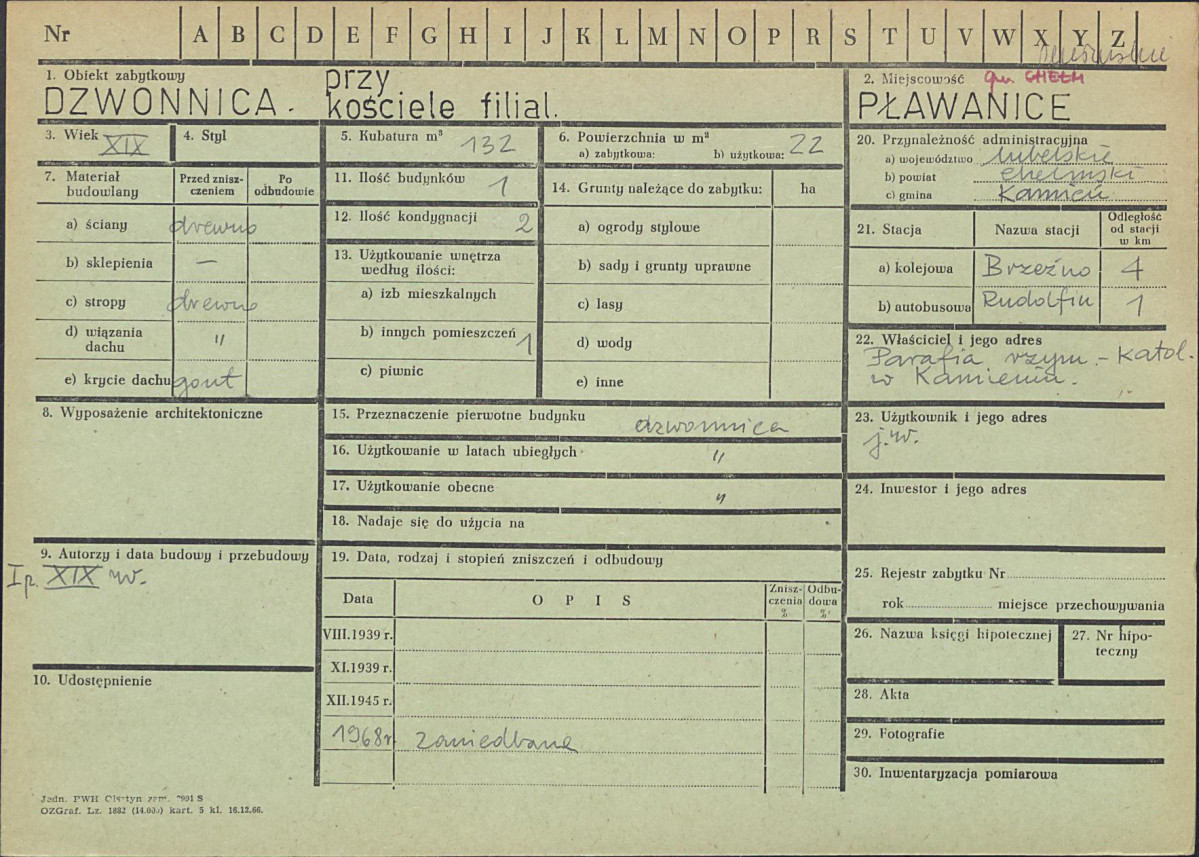 Nr A B C D E F G H I J K L M N O P R S T U V W X Y Z
1. Obiekt zabytkowy
DZWONNICA. przy
kościele filial.
2. Miejscowość gm. CHEŁM
PŁAWANICE
3. Wiek XIX
4. Styl
5. Kubatura m³ 132
6. Powierzchnia w m²
a) zabytkowa: b) użytkowa: 22
7. Materiał budowlany
Przed zniszczeniem
Po odbudowie
a) ściany drewno
b) sklepienia —
c) stropy drewno
d) wiązania dachu "
e) krycie dachu gont
8. Wyposażenie architektoniczne
9. Autorzy i data budowy i przebudowy
I p. XIX w.
10. Udostępnienie
11. Ilość budynków 1
12. Ilość kondygnacji 2
13. Użytkowanie wnętrza
według ilości:
a) izb mieszkalnych
b) innych pomieszczeń 1
c) piwnic
14. Grunty należące do zabytku: ha
a) ogrody stylowe
b) sady i grunty uprawne
c) lasy
d) wody
e) inne
15. Przeznaczenie pierwotne budynku dzwonnica
16. Użytkowanie w latach ubiegłych "
17. Użytkowanie obecne "
18. Nadaje się do użycia na
19. Data, rodzaj i stopień zniszczeń i odbudowy
Data O P I S Zniszczenia % Odbudowa %
VIII.1939 r.
XI.1939 r.
XII.1945 r.
1968r zaniedbana
20. Przynależność administracyjna
a) województwo lubelskie
b) powiat chełmski
c) gmina Kamień
21. Stacja Nazwa stacji Odległość od stacji w km
a) kolejowa Brzeźno 4
b) autobusowa Rudolfin 1
22. Właściciel i jego adres
Parafia rzym.-katol.
w Kamieniu.
23. Użytkownik i jego adres
j.w.
24. Inwestor i jego adres
25. Rejestr zabytku Nr
rok miejsce przechowywania
26. Nazwa księgi hipotecznej
27. Nr hipoteczny
28. Akta
29. Fotografie
30. Inwentaryzacja pomiarowa
Jedn. PWH Olsztyn zam. 7991 S
OZGraf. Lz. 1882 (14.000) kart. 5 kl. 16.12.66.